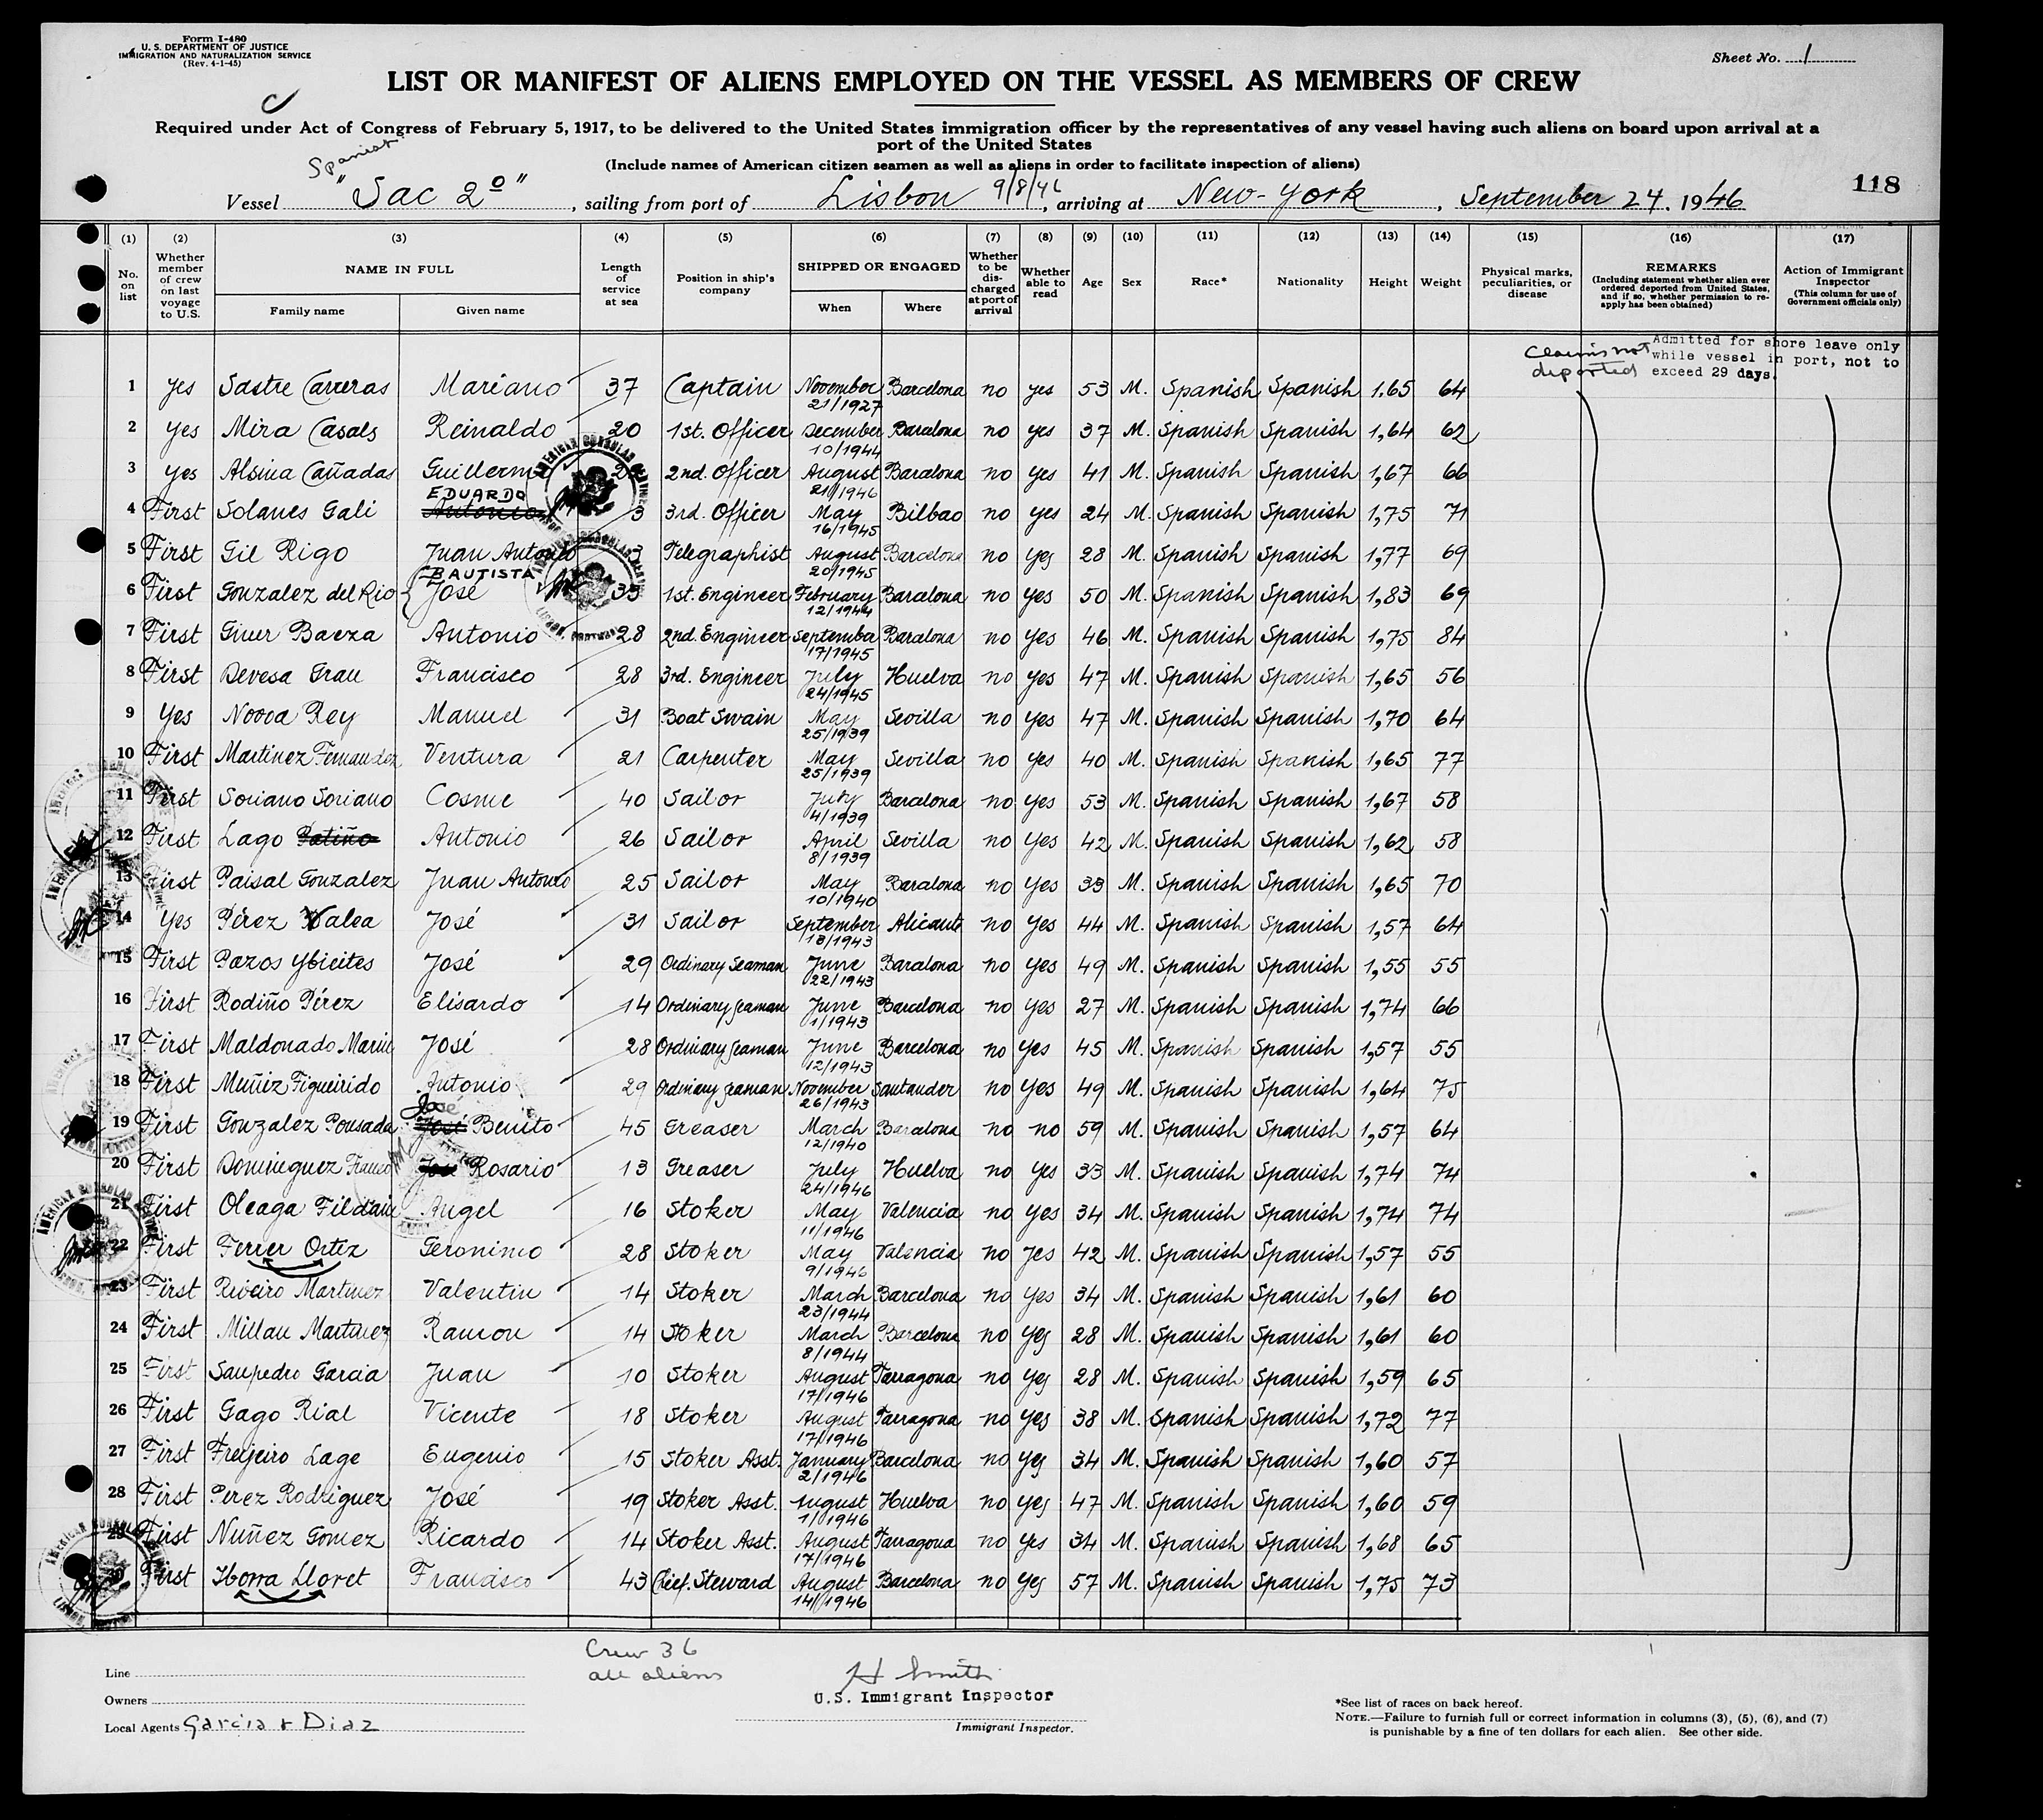 Form I-480
U. S. DEPARTMENT OF JUSTICE
IMMIGRATION AND NATURALIZATION SERVICE
(Rev. 4-1-45)
Sheet No. 1
LIST OR MANIFEST OF ALIENS EMPLOYED ON THE VESSEL AS MEMBERS OF CREW
Required under Act of Congress of February 5, 1917, to be delivered to the United States immigration officer by the representatives of any vessel having such aliens on board upon arrival at a
port of the United States
(Include names of American citizen seamen as well as aliens in order to facilitate inspection of aliens)
Spanish
Vessel "Sac 2º", sailing from port of Lisbon 9/8/46, arriving at New-York, September 24, 1946
118
(1) (2) (3) (4) (5) (6) (7) (8) (9) (10) (11) (12) (13) (14) (15) (16) (17)
No. on list
Whether member of crew on last voyage to U.S.
NAME IN FULL
Family name Given name
Length of service at sea
Position in ship's company
SHIPPED OR ENGAGED
When Where
Whether to be discharged at port of arrival
Whether able to read
Age Sex Race* Nationality Height Weight
Physical marks, peculiarities, or disease
REMARKS
(Including statement whether alien ever ordered deported from United States, and if so, whether permission to reapply has been obtained)
Action of Immigrant Inspector
(This column for use of Government officials only)
Claims not deported
Admitted for shore leave only
while vessel in port, not to
exceed 29 days.
1 Yes Sastre Carreras Mariano 37 Captain November 21/1927 Barcelona no yes 53 M. Spanish Spanish 1,65 64
2 Yes Mira Casals Reinaldo 20 1st. Officer December 10/1944 Barcelona no yes 37 M. Spanish Spanish 1,64 62
3 Yes Alsina Cañadas Guillermo 2nd. Officer August 21/1946 Barcelona no yes 41 M. Spanish Spanish 1,67 66
4 First Solanes Gali EDUARDO Antonio 3 3rd. Officer May 16/1945 Bilbao no yes 24 M. Spanish Spanish 1,75 71
5 First Gil Rigo Juan Antonio 3 Telegraphist August 20/1945 Barcelona no yes 28 M. Spanish Spanish 1,77 69
6 First Gonzalez del Rio BAUTISTA José 35 1st. Engineer February 12/1944 Barcelona no yes 50 M. Spanish Spanish 1,83 69
7 First Giner Baeza Antonio 28 2nd. Engineer September 17/1945 Barcelona no yes 46 M. Spanish Spanish 1,75 84
8 First Devesa Grau Francisco 28 3rd. Engineer July 24/1945 Huelva no yes 47 M. Spanish Spanish 1,65 56
9 Yes Novoa Rey Manuel 31 Boat Swain May 25/1939 Sevilla no yes 47 M. Spanish Spanish 1,70 64
10 First Martinez Fernandez Ventura 21 Carpenter May 25/1939 Sevilla no yes 40 M. Spanish Spanish 1,65 77
11 First Soriano Soriano Cosme 40 Sailor July 4/1939 Barcelona no yes 53 M. Spanish Spanish 1,67 58
12 First Lago Patiño Antonio 26 Sailor April 8/1939 Sevilla no yes 42 M. Spanish Spanish 1,62 58
13 First Paisal Gonzalez Juan Antonio 25 Sailor May 10/1940 Barcelona no yes 39 M. Spanish Spanish 1,65 70
14 Yes Pérez Valea José 31 Sailor September 18/1943 Alicante no yes 44 M. Spanish Spanish 1,57 64
15 First Pazos José 29 Ordinary Seaman June 22/1943 Barcelona no yes 49 M. Spanish Spanish 1,55 55
16 First Rodiño Pérez Elisardo 14 Ordinary Seaman June 1/1943 Barcelona no yes 27 M. Spanish Spanish 1,74 66
17 First Maldonado José 28 Ordinary Seaman June 12/1943 Barcelona no yes 45 M. Spanish Spanish 1,57 55
18 First Muñiz Figueirido Antonio 29 Ordinary Seaman November 26/1943 Santander no yes 49 M. Spanish Spanish 1,64 75
19 First Gonzalez Pousada José José Benito 45 Greaser March 12/1940 Barcelona no no 59 M. Spanish Spanish 1,57 64
20 First Dominguez Franco José Rosario 13 Greaser July 24/1946 Huelva no yes 33 M. Spanish Spanish 1,74 74
21 First Oleaga Angel 16 Stoker May 11/1946 Valencia no yes 34 M. Spanish Spanish 1,74 74
22 First Ferrer Ortiz Geronimo 28 Stoker May 9/1946 Valencia no yes 42 M. Spanish Spanish 1,57 55
23 First Ribeiro Martinez Valentin 14 Stoker March 23/1944 Barcelona no yes 34 M. Spanish Spanish 1,61 60
24 First Millan Martinez Ramon 14 Stoker March 8/1944 Barcelona no yes 28 M. Spanish Spanish 1,61 60
25 First Sanpedro Garcia Juan 10 Stoker August 17/1946 Tarragona no yes 28 M. Spanish Spanish 1,59 65
26 First Gago Rial Vicente 18 Stoker August 17/1946 Tarragona no yes 38 M. Spanish Spanish 1,72 77
27 First Freijeiro Lage Eugenio 15 Stoker Asst. January 2/1946 Barcelona no yes 34 M. Spanish Spanish 1,60 57
28 First Perez Rodriguez José 19 Stoker Asst. August 1/1946 Huelva no yes 47 M. Spanish Spanish 1,60 59
29 First Nuñez Gomez Ricardo 14 Stoker Asst. August 17/1946 Tarragona no yes 34 M. Spanish Spanish 1,68 65
30 First Iborra Lloret Francisco 43 Chief. Steward August 14/1946 Barcelona no yes 57 M. Spanish Spanish 1,75 73
Crew 36
all aliens
Line
Owners
Local Agents Garcia & Diaz
H Smith
U.S. Immigrant Inspector
Immigrant Inspector.
*See list of races on back hereof.
NOTE.—Failure to furnish full or correct information in columns (3), (5), (6), and (7)
is punishable by a fine of ten dollars for each alien. See other side.